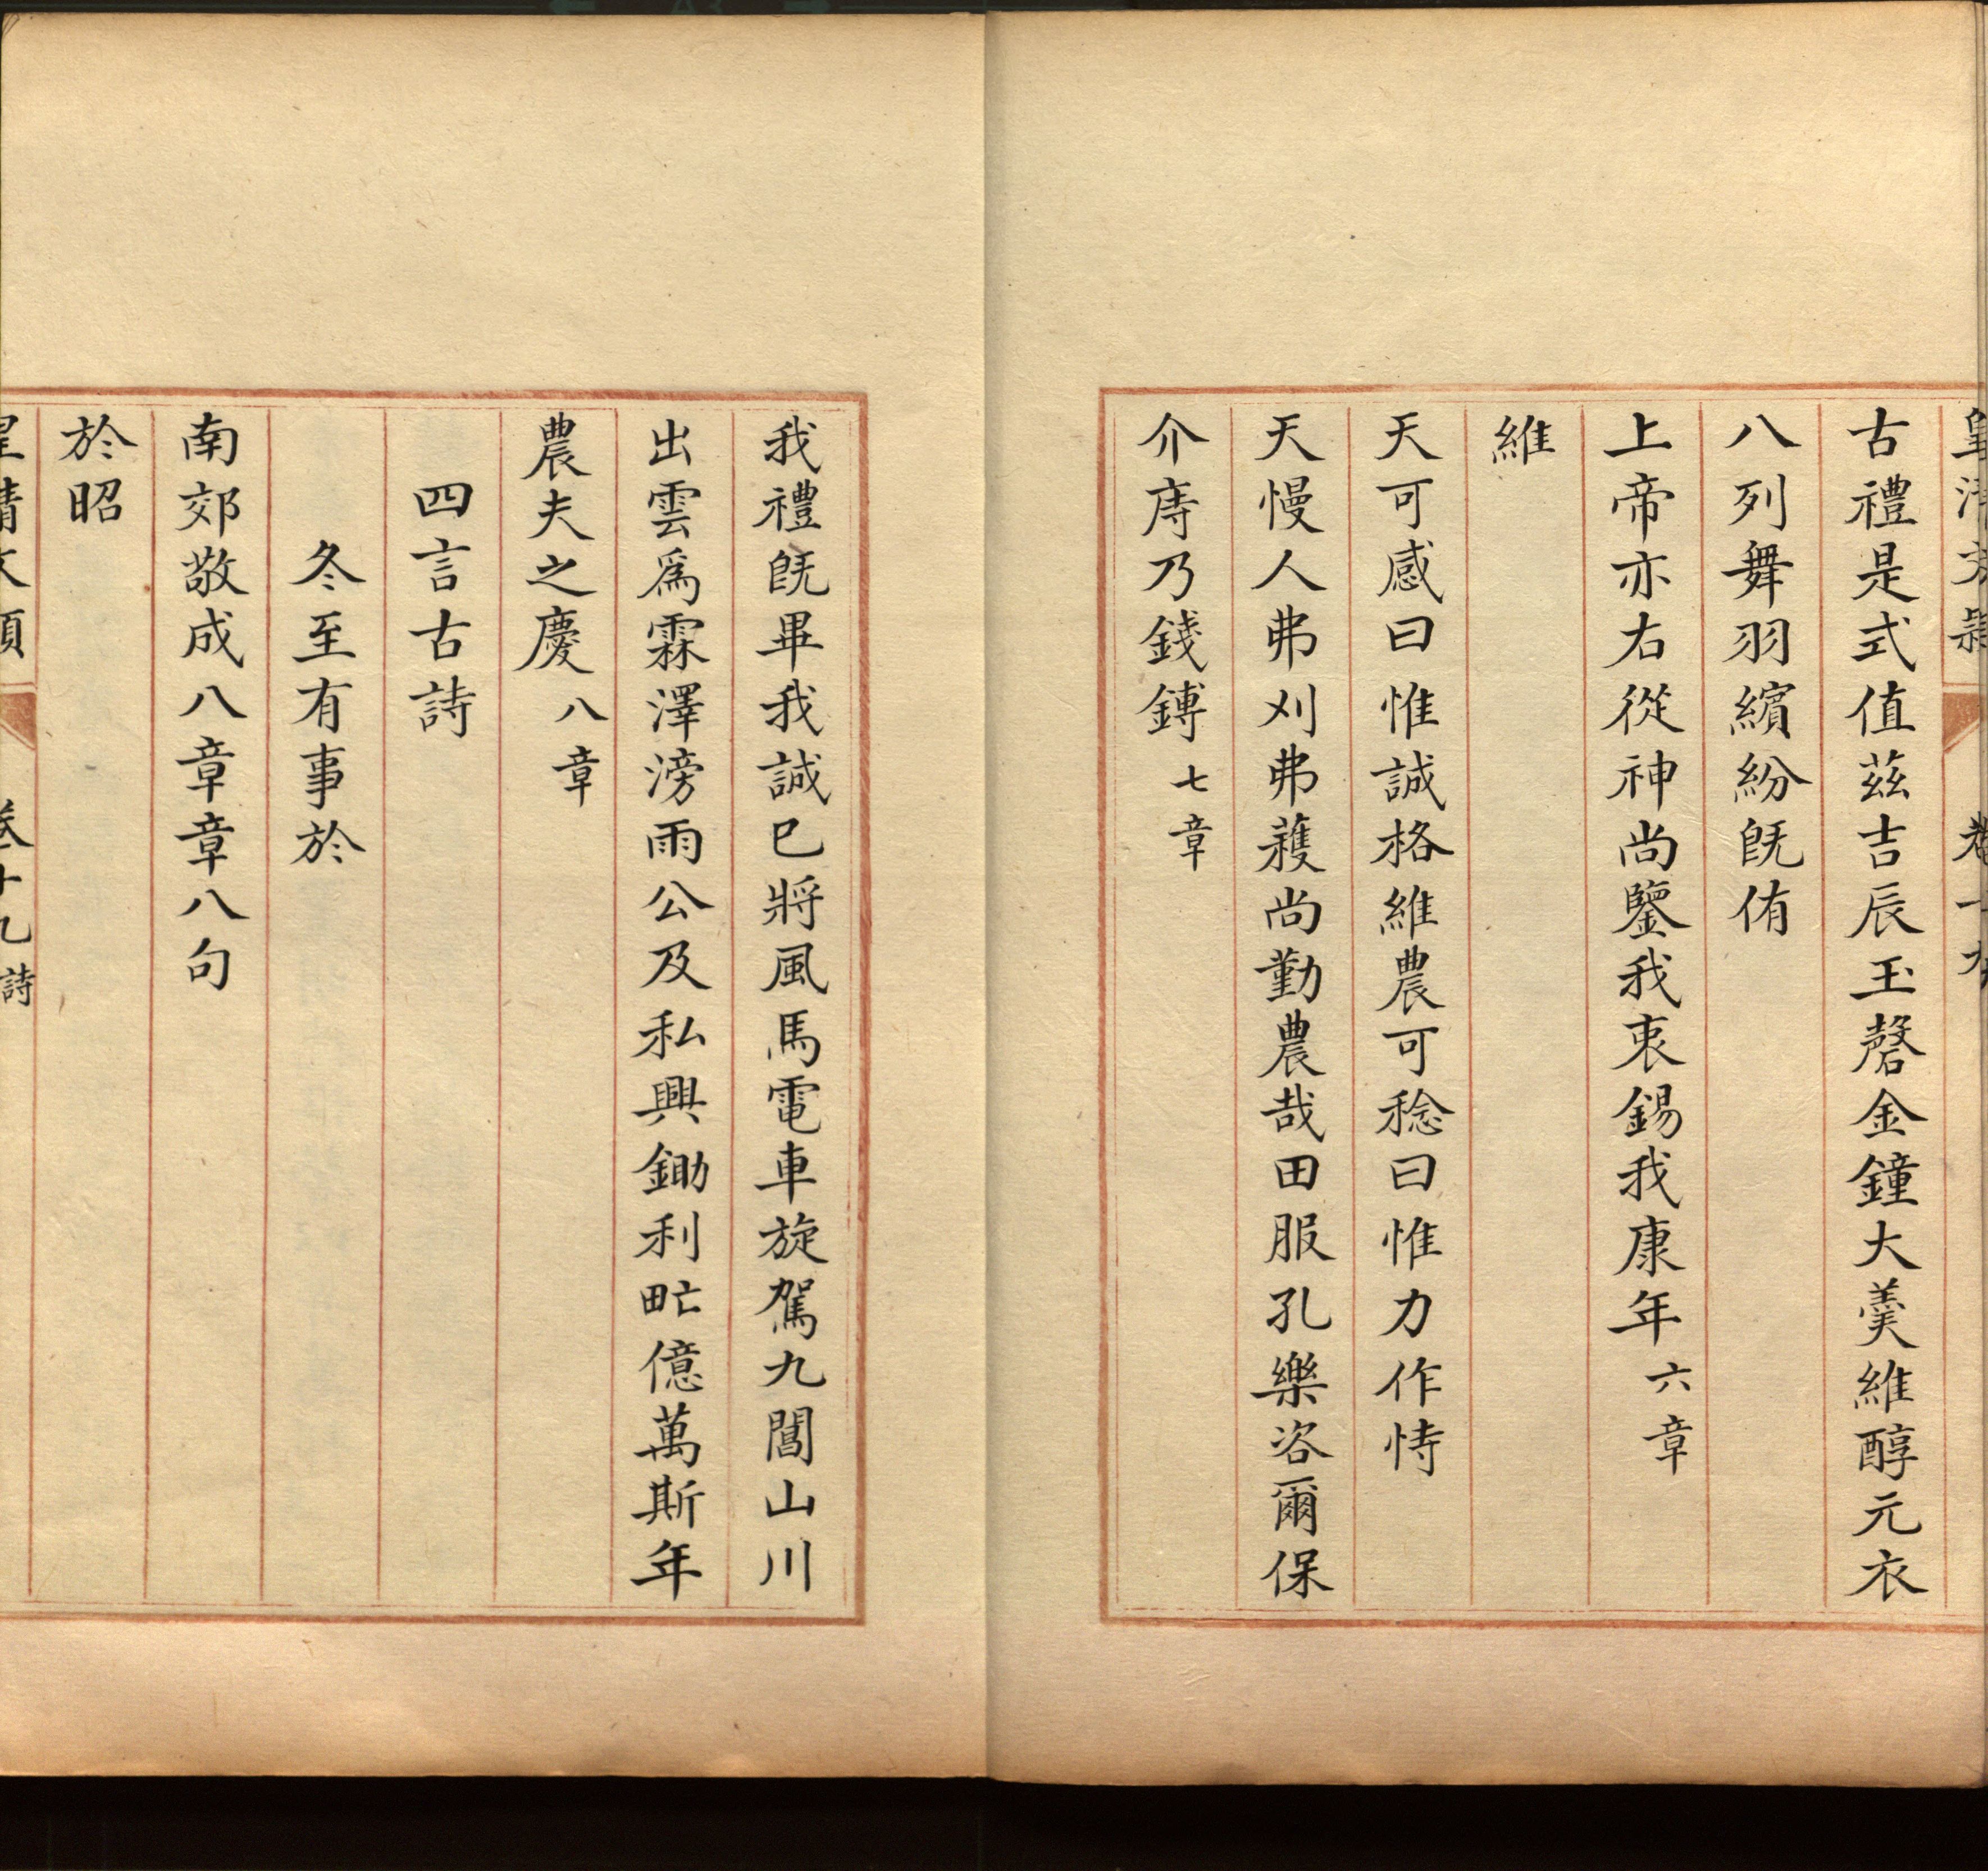 皇清文穎 卷十九
古禮是式值茲吉辰玉磬金鐘大羹維醇元衣
八列舞羽繽紛旣侑
上帝亦右從神尚鑒我衷錫我康年六章
維
天可感曰惟誠格維農可稔曰惟力作恃
天慢人弗刈弗蘾尚勤農哉田服孔樂咨爾保
介庤乃錢鎛七章
我禮旣畢我誠已將風馬電車旋駕九閶山川
出雲爲霖澤滂雨公及私興鋤利甿億萬斯年
農夫之慶八章
四言古詩
冬至有事於
南郊敬成八章章八句
於昭
皇清文穎 卷十九 詩